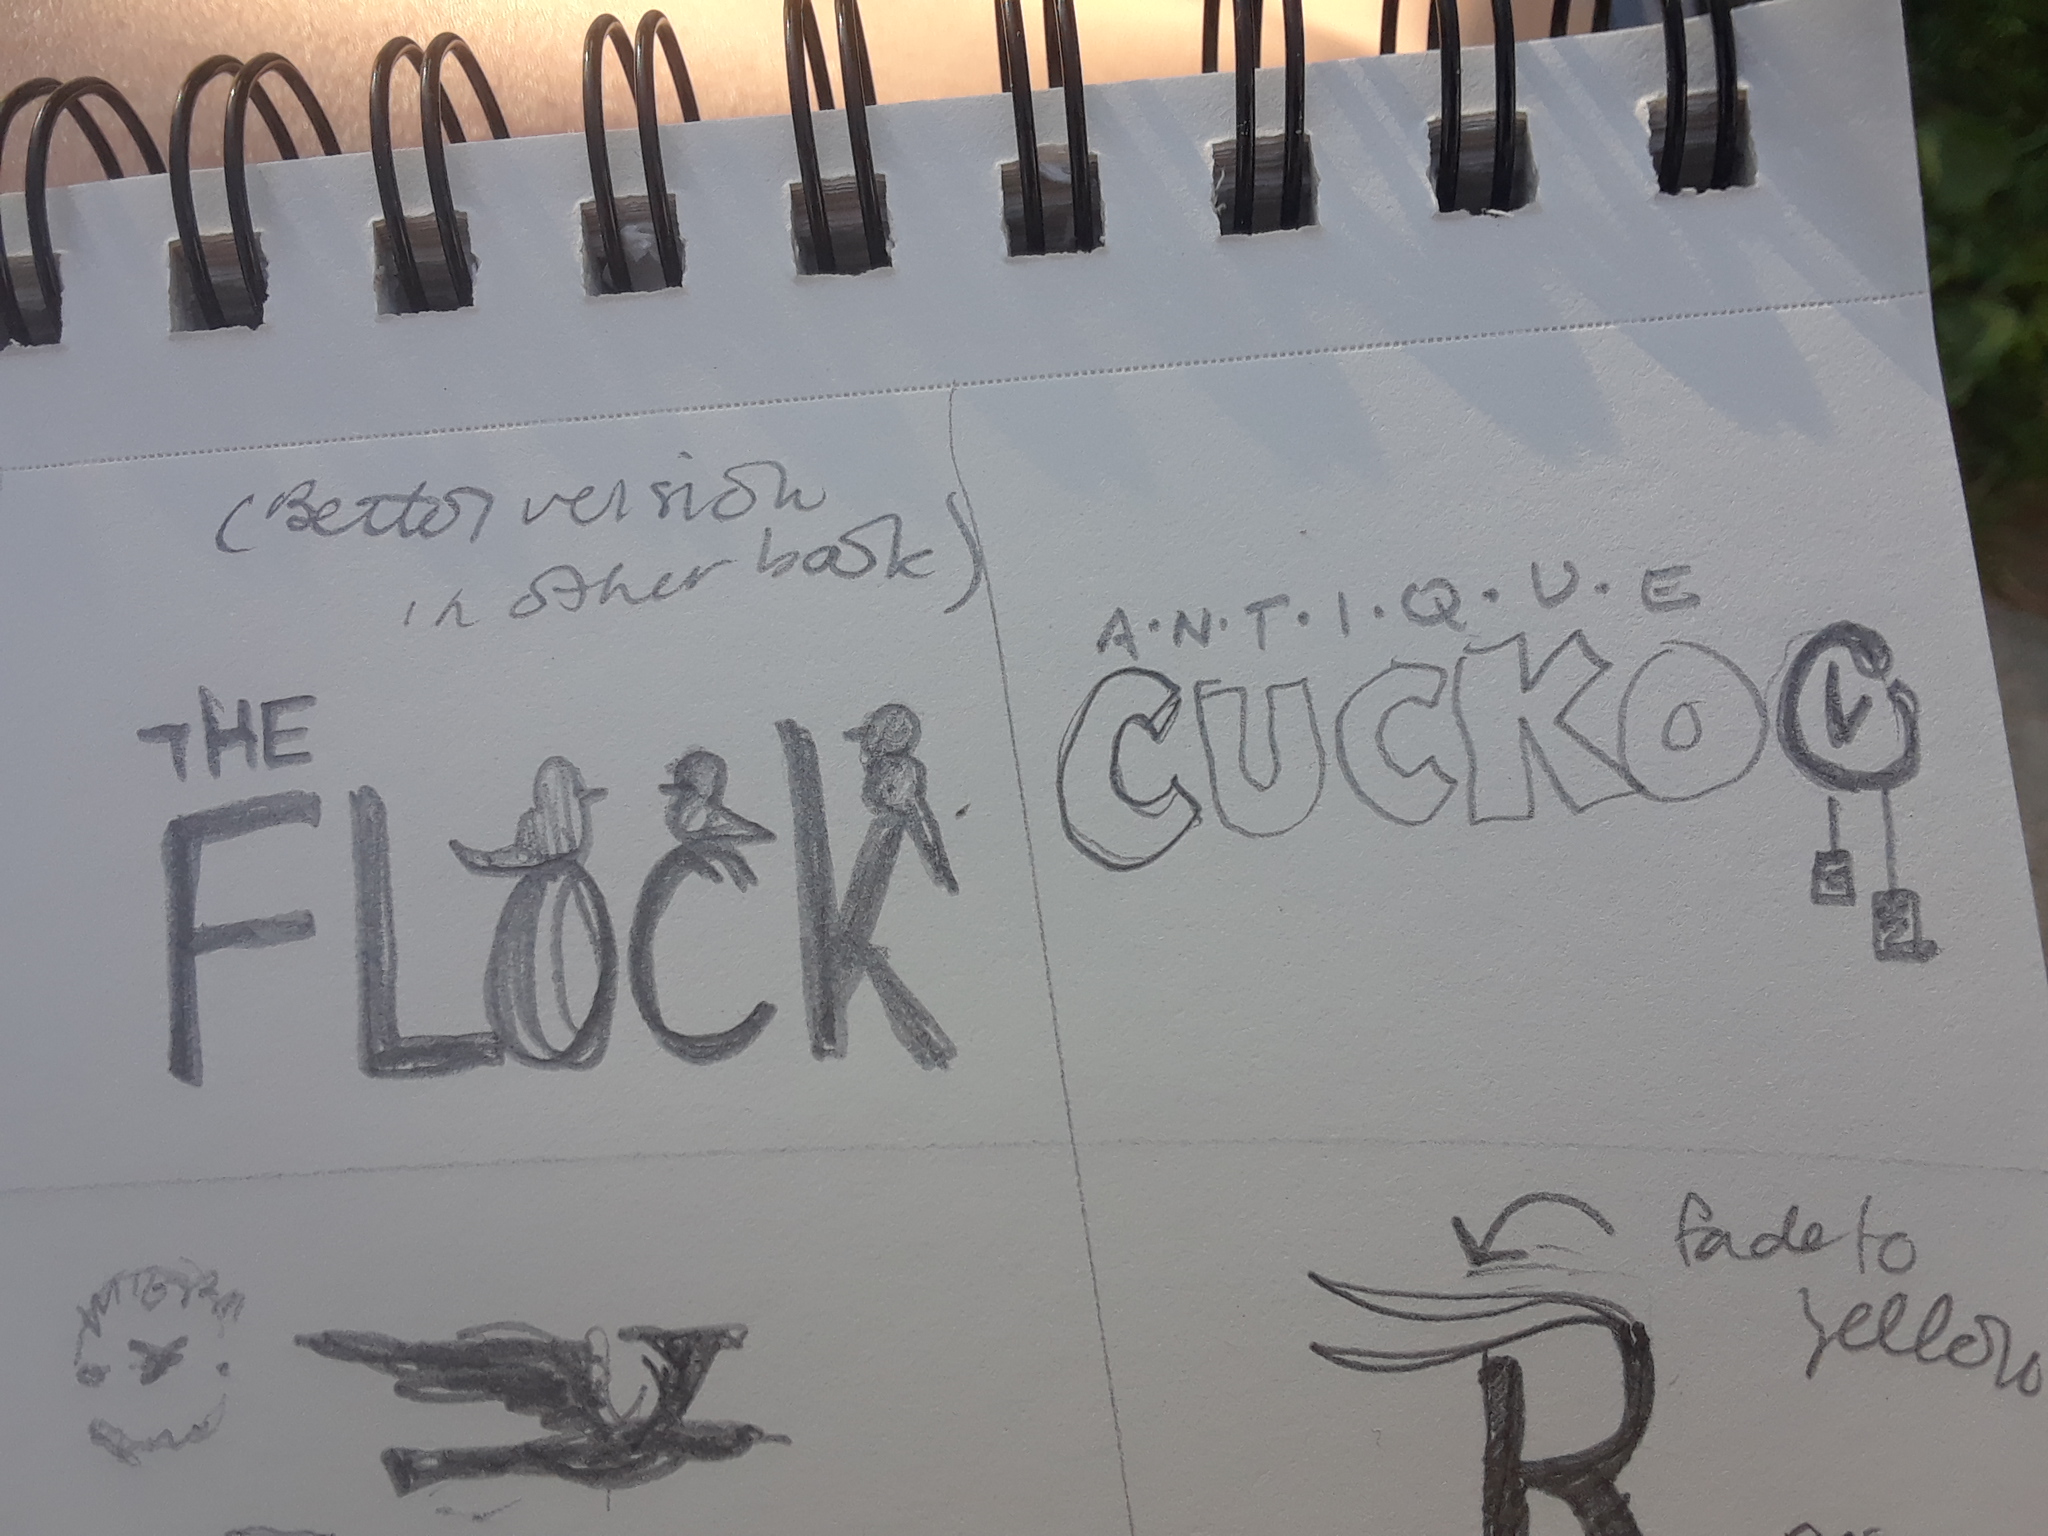 (Better version
in other book)
THE
FLOCK
A·N·T·I·Q·U·E
CUCKOO
fade to
yellow
R